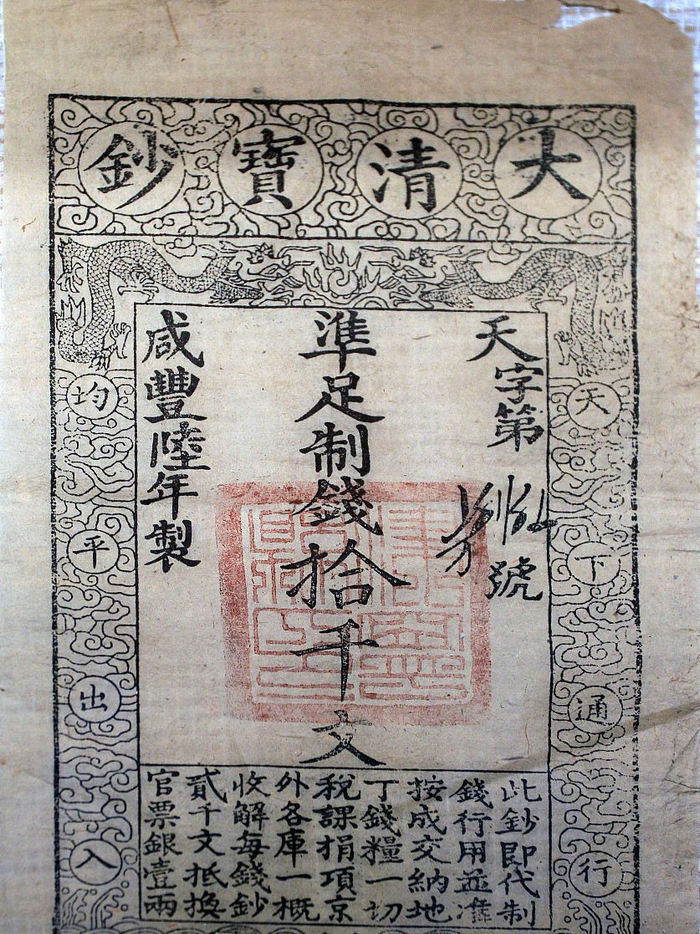 大清寶鈔
天下通行
均平出入
天字第
號
準足制錢拾千文
咸豐陸年製
此鈔即代制
錢行用並準
按成交納地
丁錢糧一切
稅課捐項京
外各庫一概
收解每錢鈔
貳千文抵換
官票銀壹兩